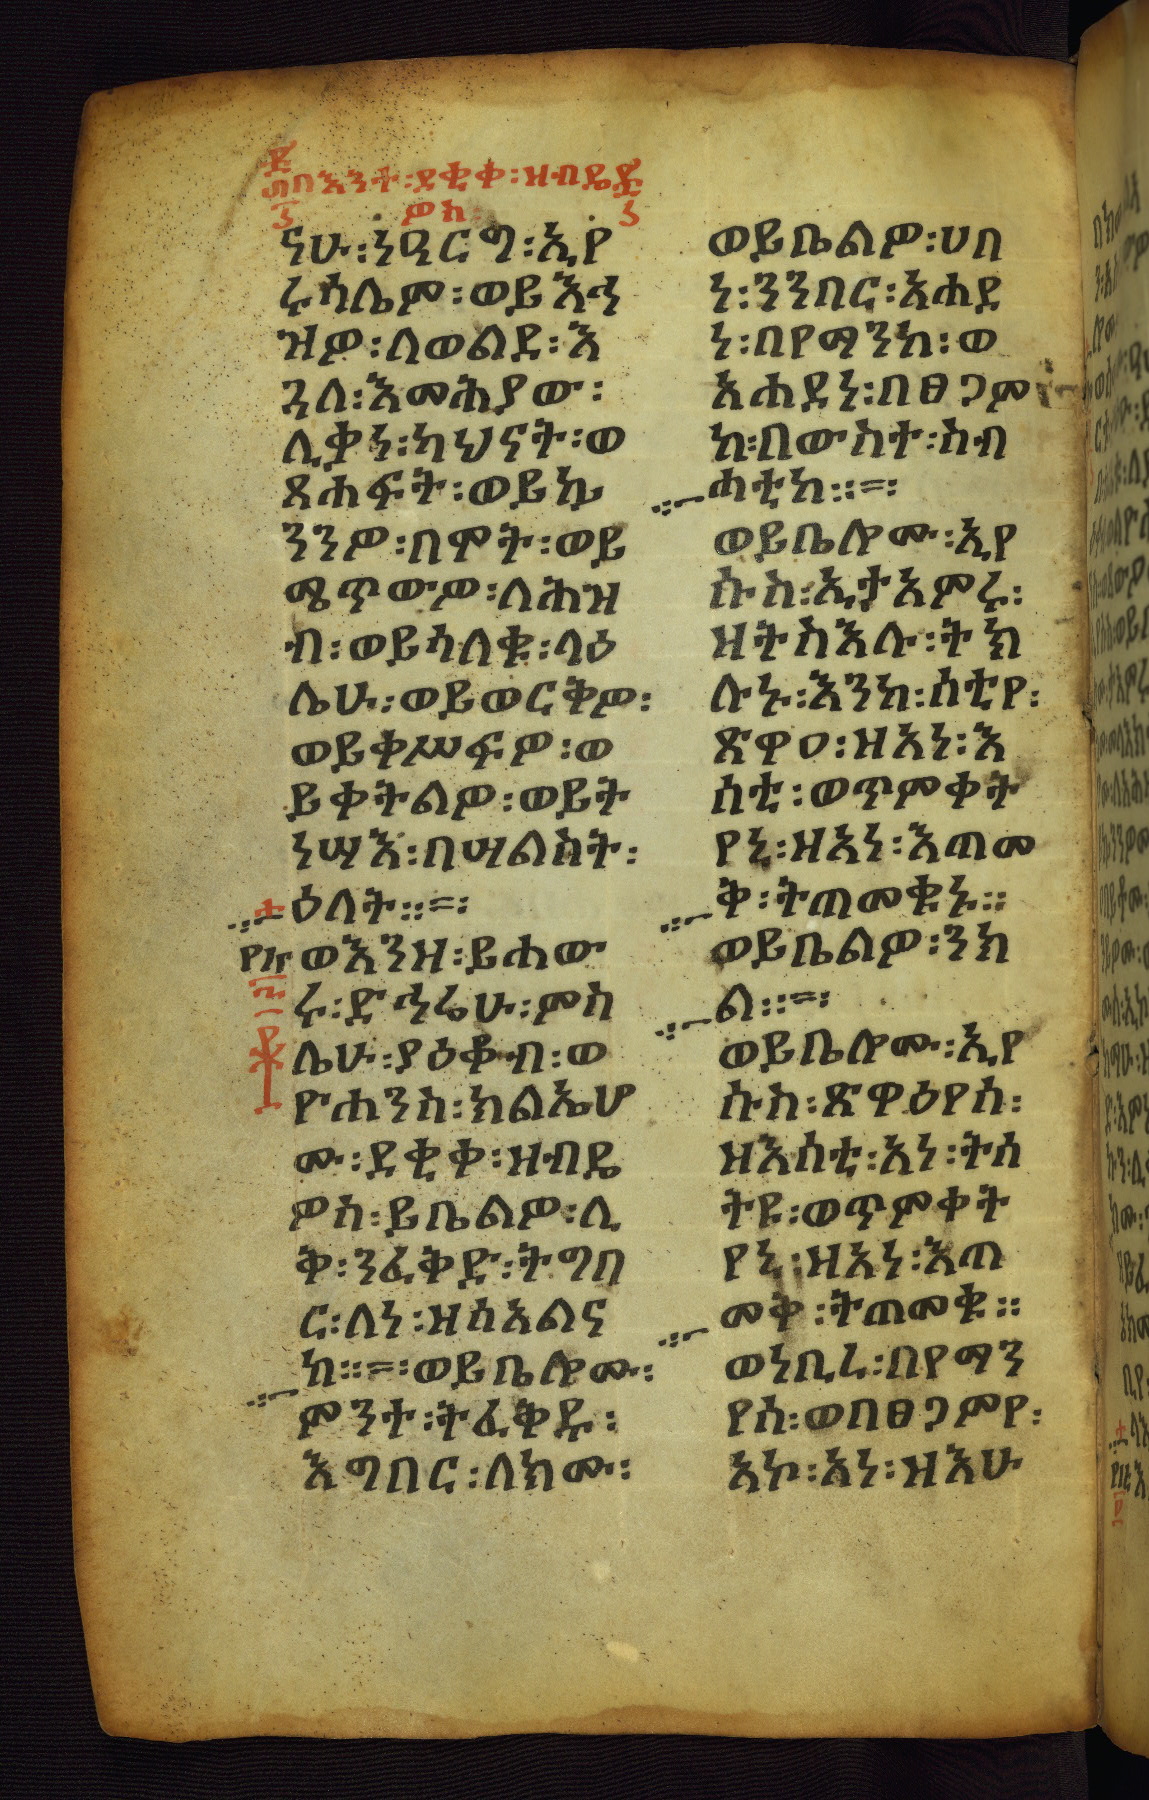 በእንተ፡ደቂቀ፡ዘብዴ
ዎስ፡
ናሁ፡ነዓርግ፡ኢየ
ሩሳሌም፡ወይእኅ
ዝዎ፡ለወልደ፡እ
ጓለ፡እመሕያው፡
ሊቃነ፡ካህናት፡ወ
ጸሐፍት፡ወይኴ
ንንዎ፡በሞት፡ወይ
ሜጥውዎ፡ለሕዝ
ብ፡ወይሳለቁ፡ላዕ
ሌሁ፡ወይወርቅዎ፡
ወይቀሥፍዎ፡ወ
ይቀትልዎ፡ወይት
ነሣእ፡በሣልስት፡
ዕለት።=፡
ወእንዘ፡ይሐው
ሩ፡ድኅሬሁ፡ምስ
ሌሁ፡ያዕቆብ፡ወ
ዮሐንስ፡ክልኤሆ
ሙ፡ደቂቀ፡ዘብዴ
ዎስ፡ይቤልዎ፡ሊ
ቅ፡ንፈቅድ፡ትግበ
ር፡ለነ፡ዘሰአልና
ከ።=፡ወይቤሎሙ፡
ምንተ፡ትፈቅዱ፡
እግበር፡ለክሙ፡
ወይቤልዎ፡ሀበ
ነ፡ንንበር፡አሐደ
ነ፡በየማንከ፡ወ
አሐደነ፡በፀጋም
ከ፡በውስተ፡ስብ
ሓቲከ።=፡
ወይቤሎሙ፡ኢየ
ሱስ፡ኢታአምሩ፡
ዘትስእሉ፡ትክ
ሉኑ፡እንከ፡ሰቲየ፡
ጽዋዐ፡ዘአነ፡እ
ሰቲ፡ወጥምቀት
የኒ፡ዘአነ፡እጠመ
ቅ፡ትጠመቁኑ።
ወይቤልዎ፡ንክ
ል።=፡
ወይቤሎሙ፡ኢየ
ሱስ፡ጽዋዕየሰ፡
ዘእሰቲ፡አነ፡ትሰ
ትዩ፡ወጥምቀት
የኒ፡ዘአነ፡እጠ
መቅ፡ትጠመቁ።
ወነቢረ፡በየማን
የሰ፡ወበፀጋምየ፡
አኮ፡አነ፡ዘእሁ